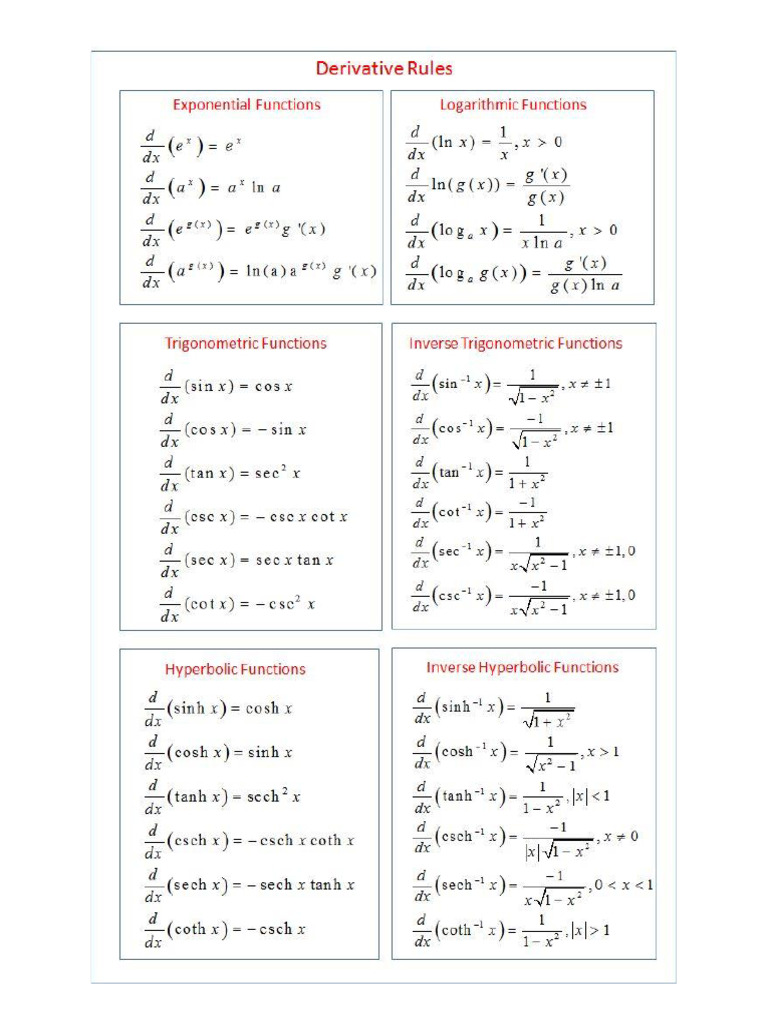 Derivative Rules
Exponential Functions
d/dx (e^x) = e^x
d/dx (a^x) = a^x ln a
d/dx (e^g(x)) = e^g(x) g '(x)
d/dx (a^g(x)) = ln(a) a^g(x) g '(x)
Logarithmic Functions
d/dx (ln x) = 1/x , x > 0
d/dx ln(g(x)) = g '(x)/g(x)
d/dx (log_a x) = 1/(x ln a) , x > 0
d/dx (log_a g(x)) = g '(x)/(g(x) ln a)
Trigonometric Functions
d/dx (sin x) = cos x
d/dx (cos x) = − sin x
d/dx (tan x) = sec² x
d/dx (csc x) = − csc x cot x
d/dx (sec x) = sec x tan x
d/dx (cot x) = − csc² x
Inverse Trigonometric Functions
d/dx (sin⁻¹ x) = 1/√(1 − x²) , x ≠ ±1
d/dx (cos⁻¹ x) = −1/√(1 − x²) , x ≠ ±1
d/dx (tan⁻¹ x) = 1/(1 + x²)
d/dx (cot⁻¹ x) = −1/(1 + x²)
d/dx (sec⁻¹ x) = 1/(x√(x² − 1)) , x ≠ ±1, 0
d/dx (csc⁻¹ x) = −1/(x√(x² − 1)) , x ≠ ±1, 0
Hyperbolic Functions
d/dx (sinh x) = cosh x
d/dx (cosh x) = sinh x
d/dx (tanh x) = sech² x
d/dx (csch x) = − csch x coth x
d/dx (sech x) = − sech x tanh x
d/dx (coth x) = − csch x
Inverse Hyperbolic Functions
d/dx (sinh⁻¹ x) = 1/√(1 + x²)
d/dx (cosh⁻¹ x) = 1/√(x² − 1) , x > 1
d/dx (tanh⁻¹ x) = 1/(1 − x²) , |x| < 1
d/dx (csch⁻¹ x) = −1/(|x|√(1 − x²)) , x ≠ 0
d/dx (sech⁻¹ x) = −1/(x√(1 − x²)) , 0 < x < 1
d/dx (coth⁻¹ x) = 1/(1 − x²) , |x| > 1